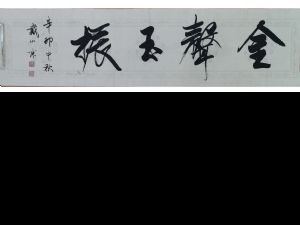 金聲玉振
辛卯中秋
戴小京